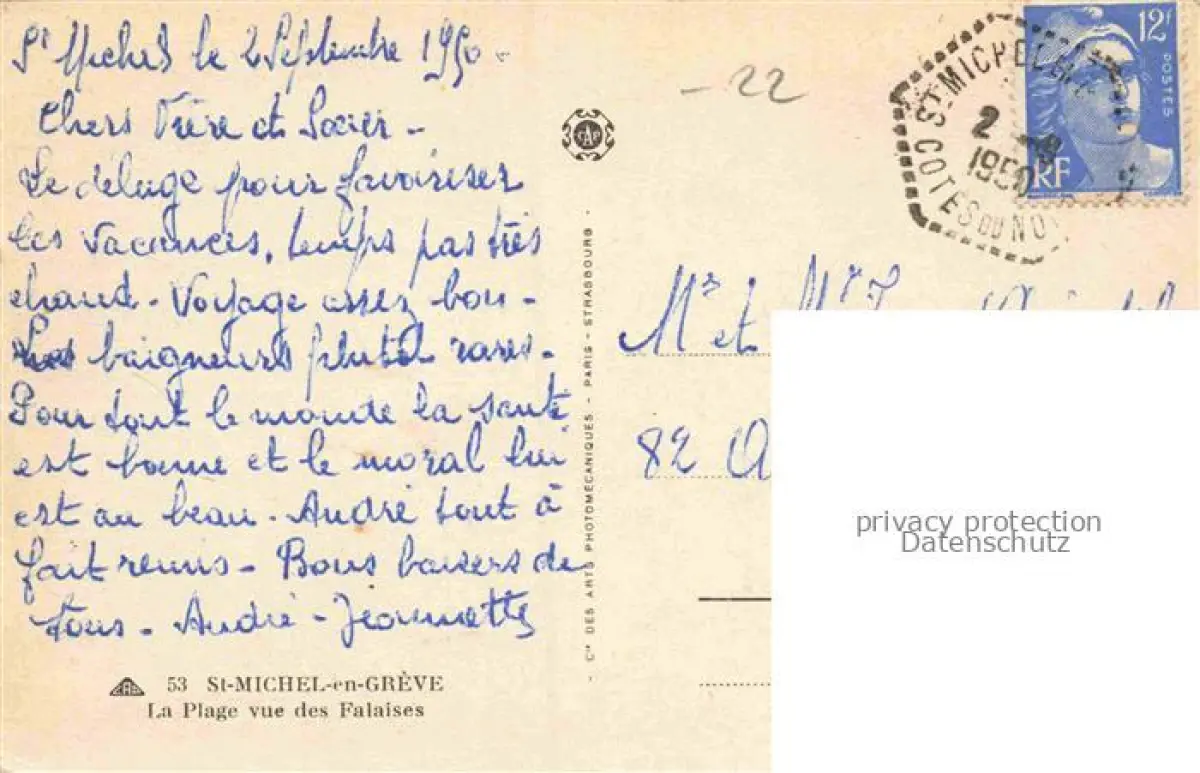 St Michel le 2 Septembre 1950 -
Chers Frère et Soeur -
Le déluge pour favoriser
les vacances, temps pas très
chaud - Voyage assez bon -
Les baigneurs plutôt rares -
Pour tout le monde la santé
est bonne et le moral lui
est au beau - André tout à
fait remis - Bons baisers de
tous - André - Jeannette
53 St-MICHEL-en-GRÈVE
La Plage vue des Falaises
Cie DES ARTS PHOTOMÉCANIQUES - PARIS - STRASBOURG
CAP
- 22
ST MICHEL EN
2 - 9
1950
COTES DU NO
12F
POSTES
RF
Mr et Mme
82
privacy protection
Datenschutz